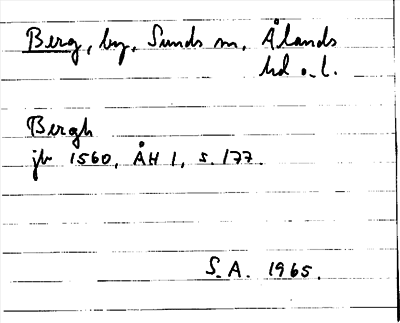 Berg, by, Sunds sn, Ålands
hd o. l.
Bergh
jb 1560, ÅH 1, s. 177.
S. A. 1965.